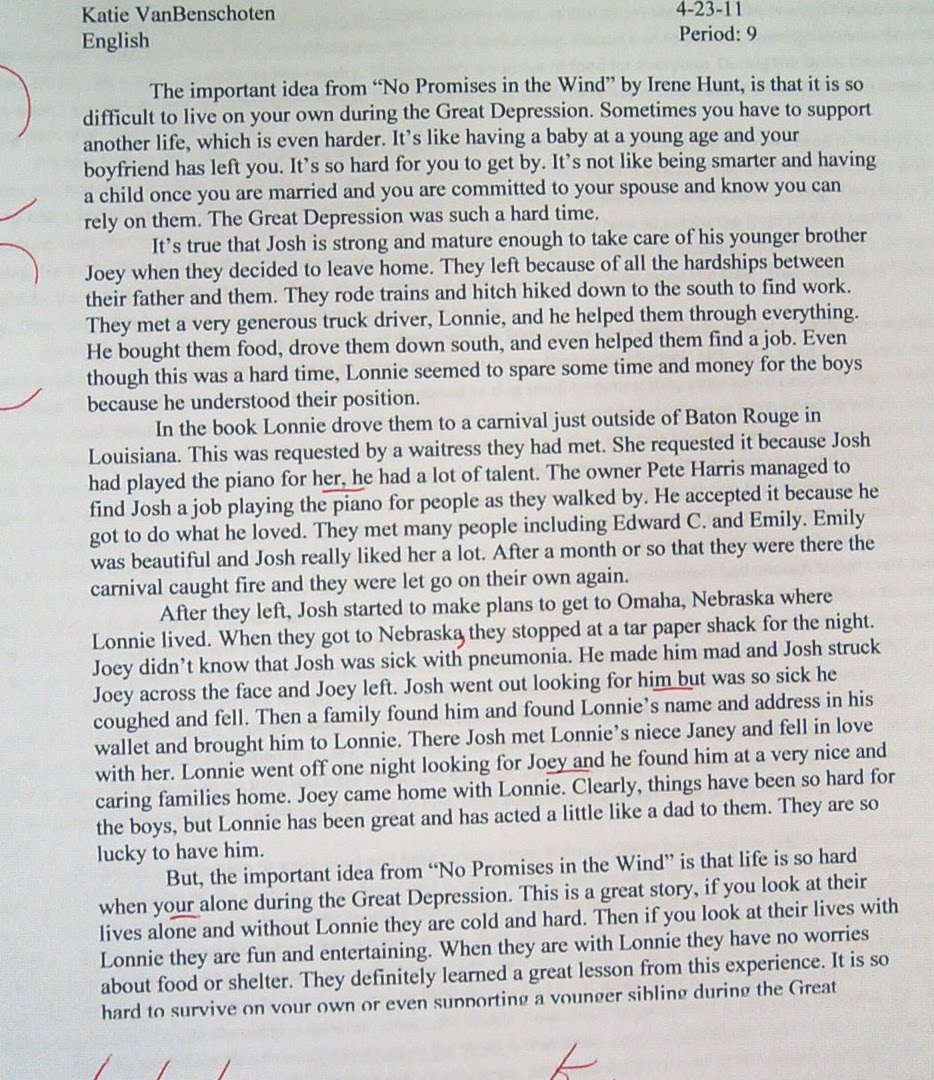 Katie VanBenschoten 4-23-11
English Period: 9
The important idea from “No Promises in the Wind” by Irene Hunt, is that it is so
difficult to live on your own during the Great Depression. Sometimes you have to support
another life, which is even harder. It’s like having a baby at a young age and your
boyfriend has left you. It’s so hard for you to get by. It’s not like being smarter and having
a child once you are married and you are committed to your spouse and know you can
rely on them. The Great Depression was such a hard time.
It’s true that Josh is strong and mature enough to take care of his younger brother
Joey when they decided to leave home. They left because of all the hardships between
their father and them. They rode trains and hitch hiked down to the south to find work.
They met a very generous truck driver, Lonnie, and he helped them through everything.
He bought them food, drove them down south, and even helped them find a job. Even
though this was a hard time, Lonnie seemed to spare some time and money for the boys
because he understood their position.
In the book Lonnie drove them to a carnival just outside of Baton Rouge in
Louisiana. This was requested by a waitress they had met. She requested it because Josh
had played the piano for her, he had a lot of talent. The owner Pete Harris managed to
find Josh a job playing the piano for people as they walked by. He accepted it because he
got to do what he loved. They met many people including Edward C. and Emily. Emily
was beautiful and Josh really liked her a lot. After a month or so that they were there the
carnival caught fire and they were let go on their own again.
After they left, Josh started to make plans to get to Omaha, Nebraska where
Lonnie lived. When they got to Nebraska, they stopped at a tar paper shack for the night.
Joey didn’t know that Josh was sick with pneumonia. He made him mad and Josh struck
Joey across the face and Joey left. Josh went out looking for him but was so sick he
coughed and fell. Then a family found him and found Lonnie’s name and address in his
wallet and brought him to Lonnie. There Josh met Lonnie’s niece Janey and fell in love
with her. Lonnie went off one night looking for Joey and he found him at a very nice and
caring families home. Joey came home with Lonnie. Clearly, things have been so hard for
the boys, but Lonnie has been great and has acted a little like a dad to them. They are so
lucky to have him.
But, the important idea from “No Promises in the Wind” is that life is so hard
when your alone during the Great Depression. This is a great story, if you look at their
lives alone and without Lonnie they are cold and hard. Then if you look at their lives with
Lonnie they are fun and entertaining. When they are with Lonnie they have no worries
about food or shelter. They definitely learned a great lesson from this experience. It is so
hard to survive on your own or even supporting a younger sibling during the Great